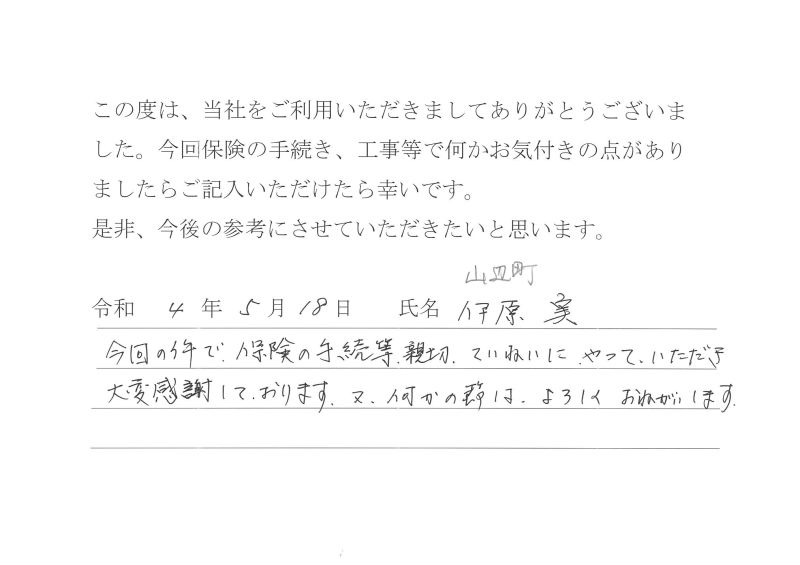 この度は、当社をご利用いただきましてありがとうございま
した。今回保険の手続き、工事等で何かお気付きの点があり
ましたらご記入いただけたら幸いです。
是非、今後の参考にさせていただきたいと思います。
山辺町
令和 4 年 5 月 18 日 氏名 伊原 実
今回の件で、保険の手続等、親切、ていねいに、やって、いただき
大変感謝して、おります。又、何かの節は、よろしく おねがいします。